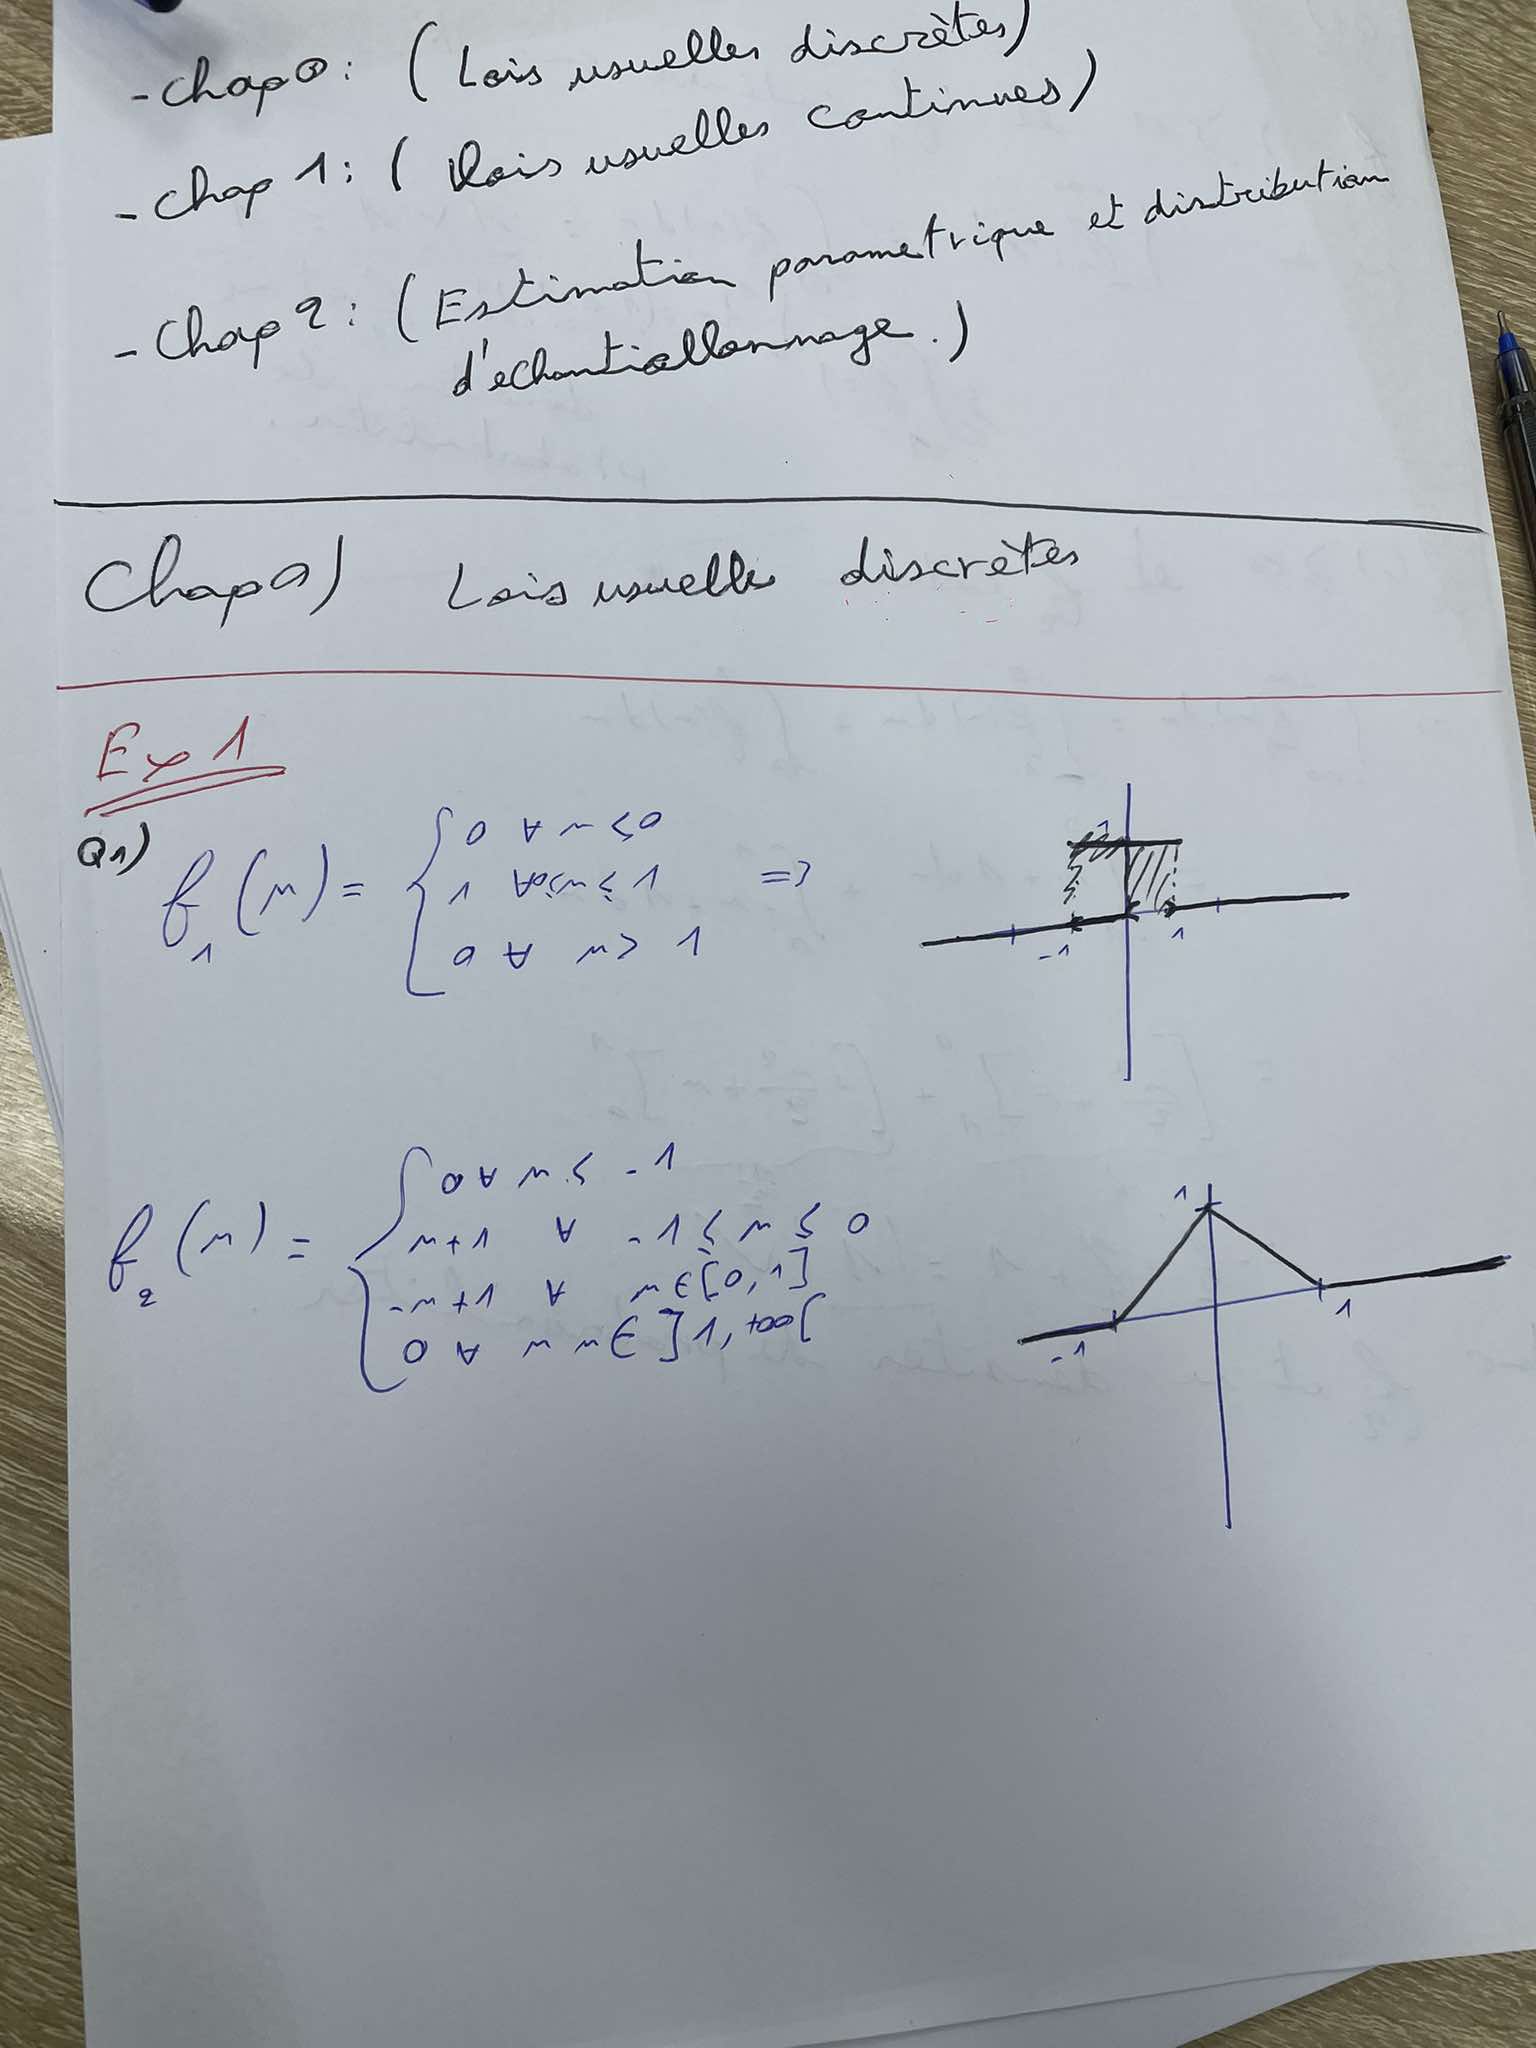 - Chap 0 : ( Lois usuelles discrètes )
- Chap 1 : ( Lois usuelles continues )
- Chap 2 : ( Estimation parametrique et distribution
d'echantiallonnage. )
Chap 0) Lois usuelles discrètes
Ex 1
Q1)
f₁(x) = { 0 ∀ x ≤ 0
1 ∀ 0≤x≤1 =>
0 ∀ x > 1
1
-1 1
f₂(x) = { 0 ∀ x ≤ -1
x+1 ∀ -1 ≤ x ≤ 0
-x+1 ∀ x ∈ [0,1]
0 ∀ x x ∈ ]1,+∞[
1
-1 1